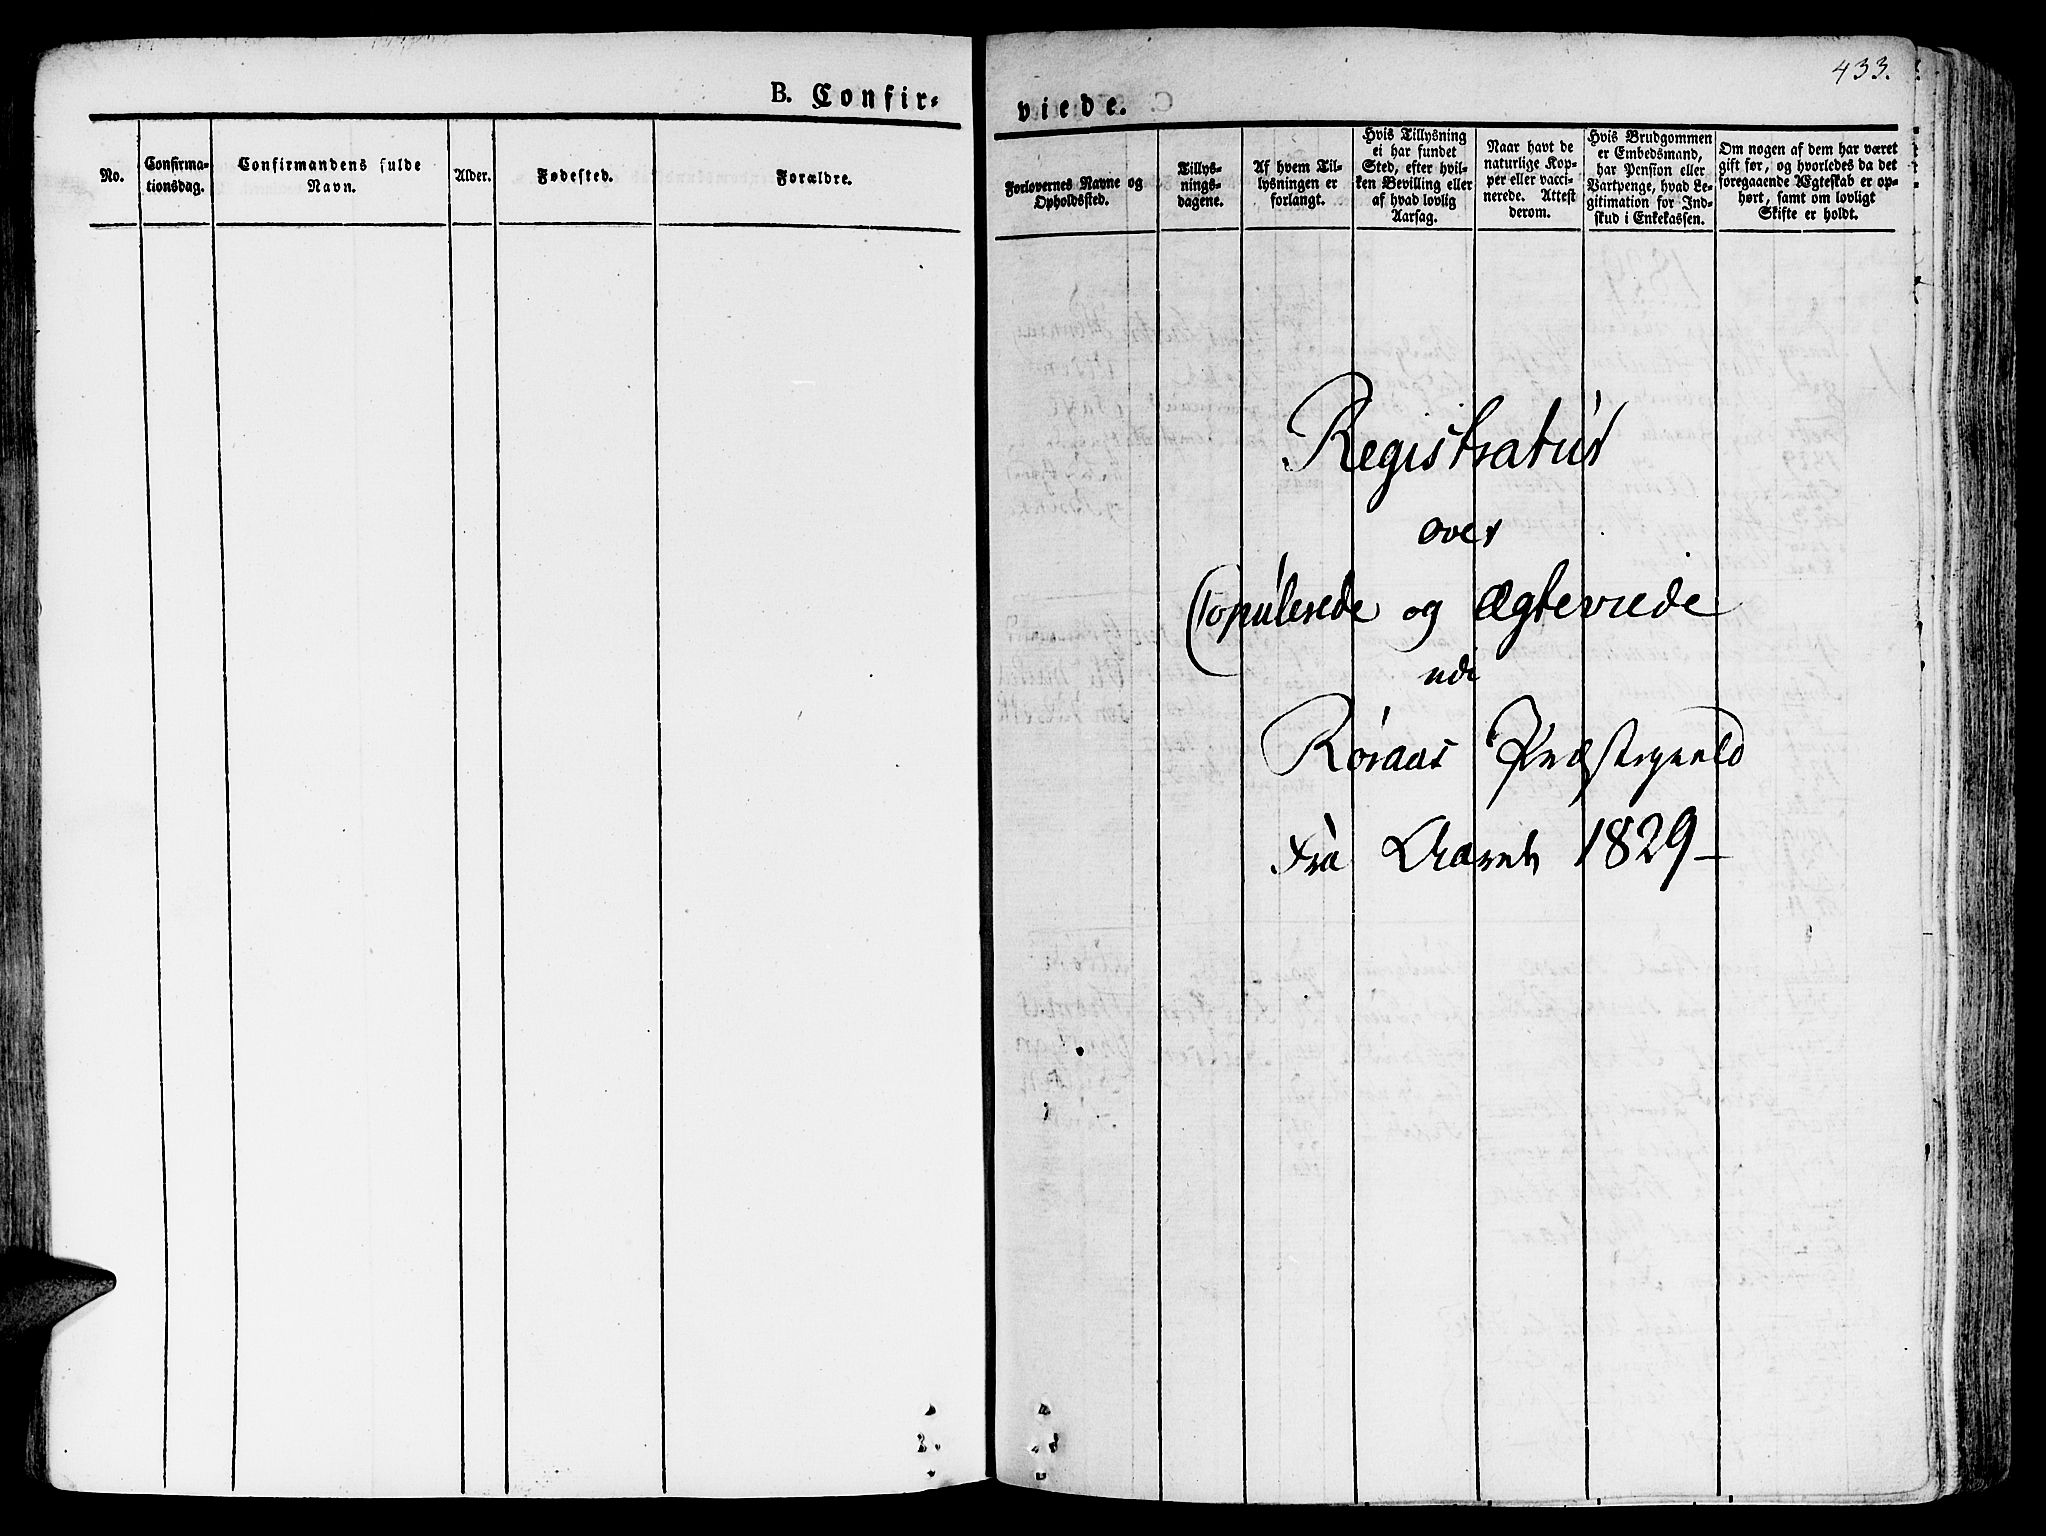 B. Confir-
No.
Confirma-
tionsdag.
Confirmandens fulde
Navn.
Alder.
Fødested.
Forældre.
433.
viede.
Forlovernes Navne og
Opholdssted.
Tillys-
nings-
dagene.
Af hvem Til-
lysningen er
forlangt.
Hvis Tillysning
ei har fundet
Sted, efter hvil-
ken Bevilling eller
af hvad lovlig
Aarsag.
Naar havt de
naturlige Kop-
per eller vacci-
nerede. Attest
derom.
Hvis Brudgommen
er Embedsmand,
har Pension eller
Vartpenge, hvad Le-
gitimation for Ind-
skud i Enkekassen.
Om nogen af dem har været
gift før, og hvorledes da det
foregaaende Ægteskab er op-
hørt, samt om lovligt
Skifte er holdt.
Registratur
over
Copulerede og Ægteviede
udi
Røraas Præstegield
fra Aaret 1829